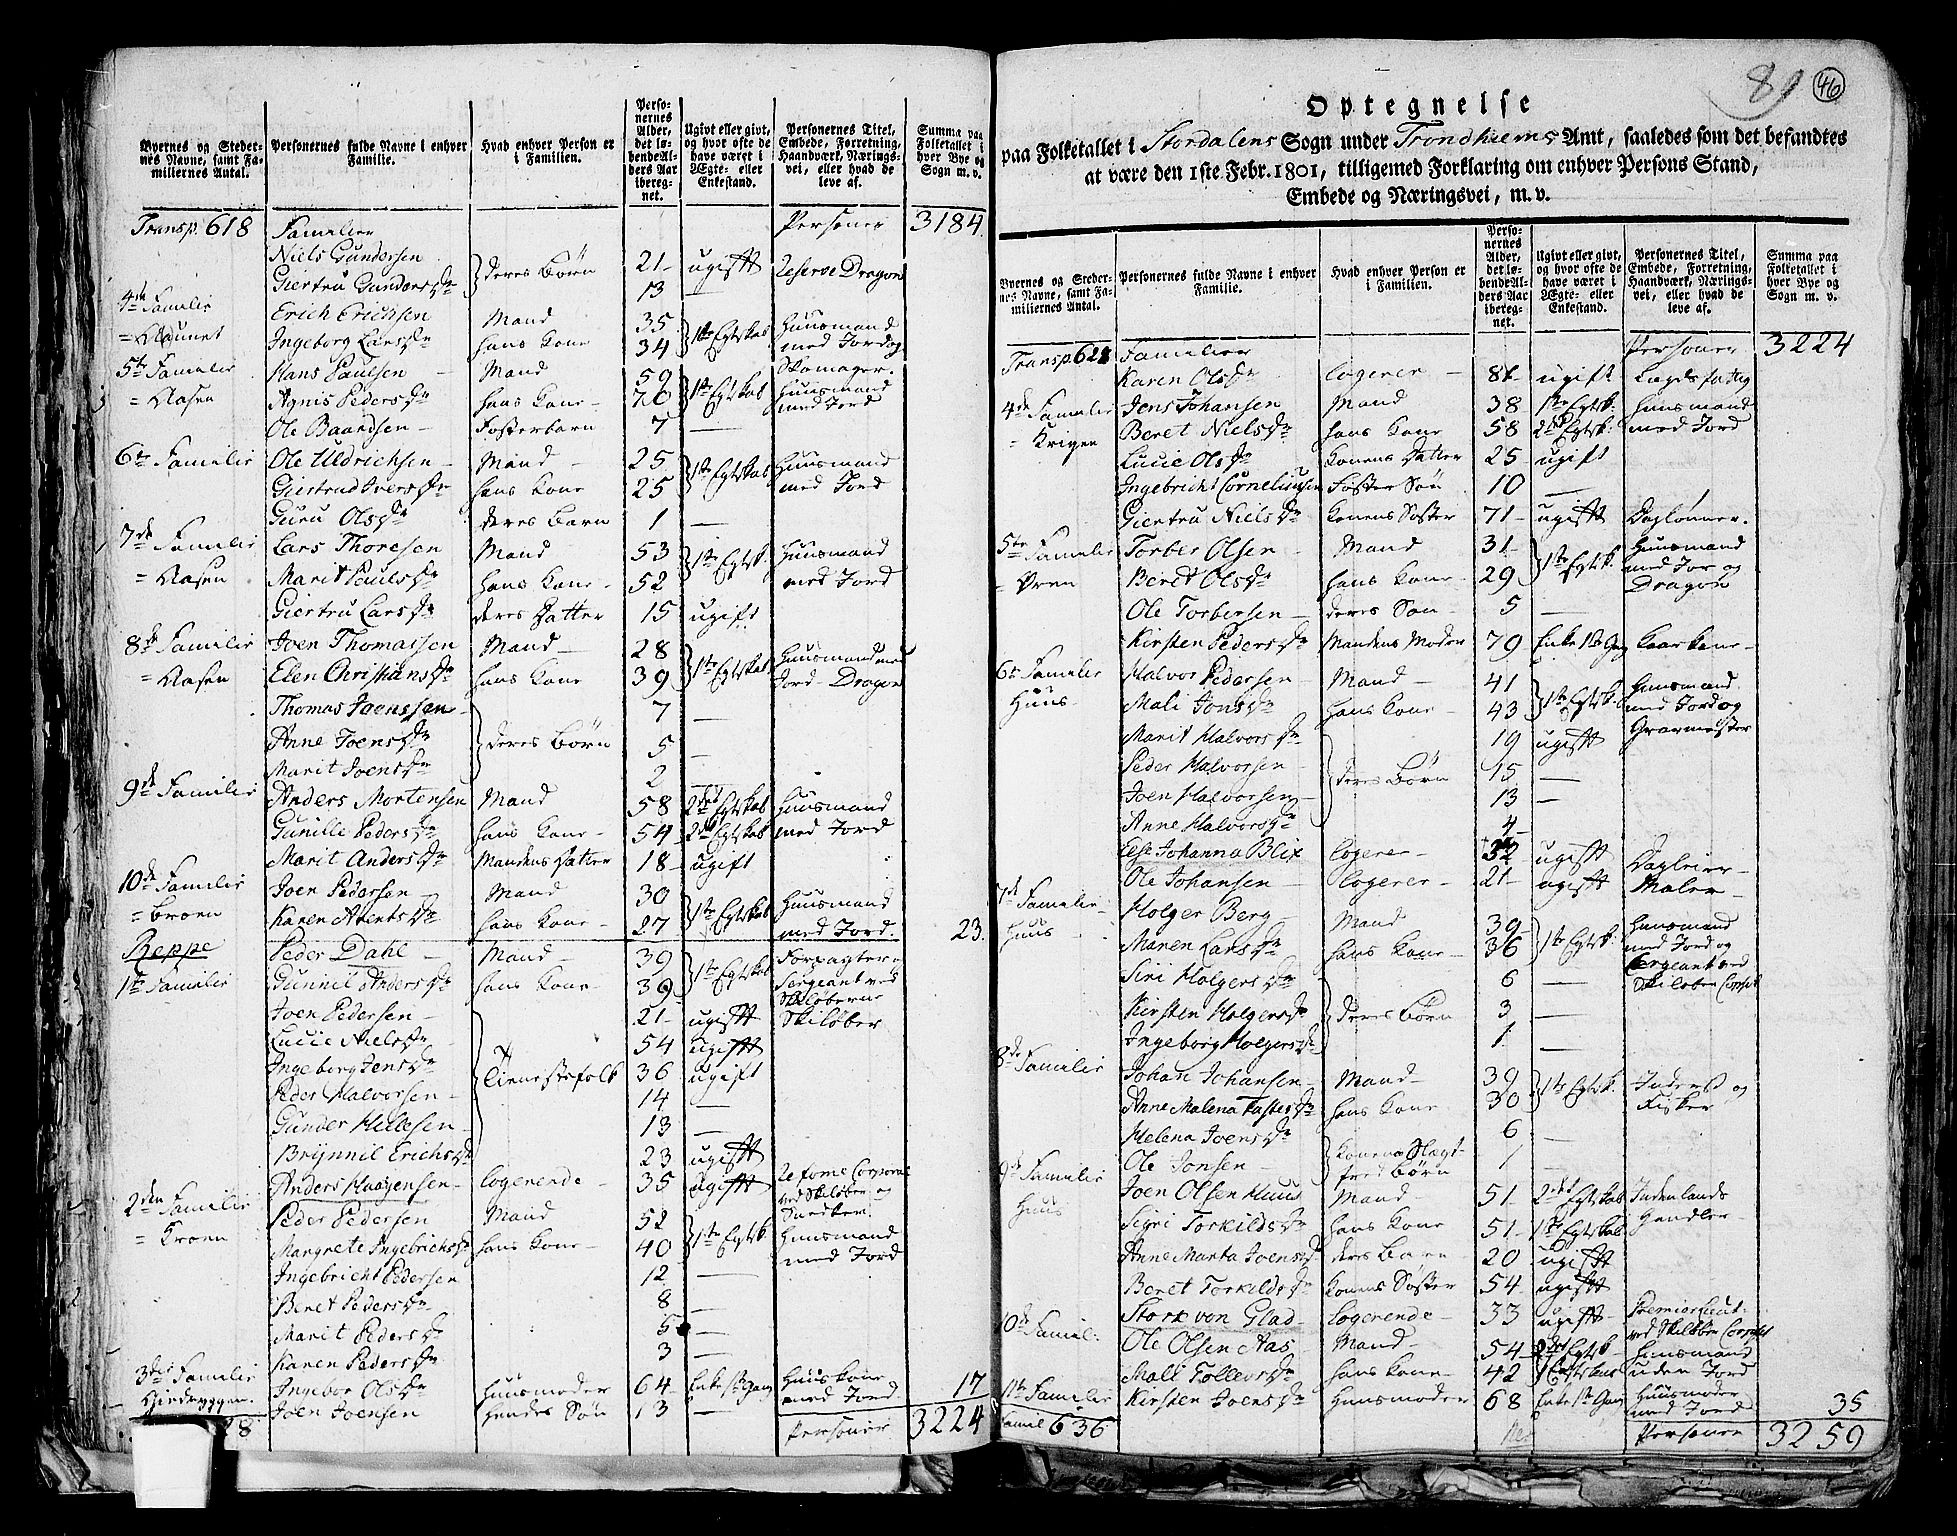 Byernes og Stedernes Navne, samt Familiernes Antal. | Personernes fulde Navne i enhver Familie. | Hvad enhver Person er i Familien. | Personernes Alder, det løbende Alders Aar iberegnet. | Ugivt eller givt, og hvor ofte de have været i Ægte- eller Enkestand. | Personernes Titel, Embede, Forretning, Haandværk, Næringsvei, eller hvad de leve af. | Summa paa Folketallet i hver Bye og Sogn m. v.
Transp. 618 Familier Personer 3184.
Niels Gundersen deres Børn 21 ugift reserve Dragon
Giertru Gundersdr 13 —
4de Familie Erich Erichsen Mand 35 1ste Egtskab Huusmand
= Aaunet Ingeborg Larsdr hans Kone 34 med Jord og
5te Familie Hans Paulsen Mand 59 1ste Egtskab Skomager. Huusmand
= Aasen Agnis Pedersdr hans Kone 76 med Jord
Ole Baardsen Fosterbarn 7 —
6te Familie Ole Uldrichsen Mand 25 1ste Egtskab Huusmand
Giertrud Iversdr hans Kone 25 med Jord
Guru Olsdr deres Barn 1 —
7de Familie Lars Thoresen Mand 53 1ste Egtsk. Huusmand
= Aasen Marit Paulsdr hans Kone 52 med Jord
Giertru Larsdr deres Datter 15 ugift
8de Familie Joen Thomassen Mand 28 1ste Egtskab Huusmand med
= Aasen Elen Christiansdr hans Kone 39 Jord Dragon
Thomas Joenssen 7 —
Anne Joensdr deres Børn 5 —
Marit Joensdr 2 —
9de Familie Anders Mortensen Mand 58 2det Egtskab Huusmand
Gunille Pedersdr hans Kone 54 2det Egtskab med Jord
Marit Andersdr Mandens Datter 18 ugift
10de Familie Joen Pedersen Mand 30 1ste Egtskab Huusmand
= Broen Karen Arentsdr hans Kone 27 med Jord. 23.
Reppe Peder Dahl Mand 39 1ste Egtskab Forpagter
1te Familie Gunnil Andersdr hans Kone 39 Sergeant ved Skiløberne
Joen Pedersen 21 ugift Skiløber
Lucie Nielsdr 54 ugift
Ingeborg Jensdr Tienestefolk 36 ugift
Peder Halvorsen 14 —
Gunder Hellesen 13 —
Brynnil Erichsdr 23 ugift
Anders Haagensen logerende 35 ugift Corporal ved Skiløber
2den Familie Peder Pedersen Mand 52 1ste Egtsk. Huusmand
= Kroen Margrete Ingebrichtsdr hans Kone 40 med Jord
Ingebricht Pedersen 12 —
Beret Pedersdr 8 —
Marit Pedersdr 5 —
Karen Pedersdr 3 —
3die Familie Ingebor Olsdr Huusmoder 64 Enke 1ste Gang Huuskone
Joen Joensen hendes Søn 13 — med Jord 17
28 Personer 3224
81 46
Optegnelse
paa Folketallet i Stordalens Sogn under Trondhiems Amt, saaledes som det befandtes
at være den 1ste Febr. 1801, tilligemed Forklaring om enhver Persons Stand,
Embede og Næringsvei, m. v.
Byernes og Stedernes Navne, samt Familiernes Antal. | Personernes fulde Navne i enhver Familie. | Hvad enhver Person er i Familien. | Personernes Alder, det løbende Alders Aar iberegnet. | Ugivt eller givt, og hvor ofte de have været i Ægte- eller Enkestand. | Personernes Titel, Embede, Forretning, Haandværk, Næringsvei, eller hvad de leve af. | Summa paa Folketallet i hver Bye og Sogn m. v.
Transp. 628 Familier Personer 3224
Karen Olsdr logerer 81 ugift Lægds fattig
4de Familie Jens Johansen Mand 38 1ste Egtsk. Huusmand
= Krigen Beret Nielsdr hans Kone 58 2det Egtsk. med Jord
Lucie Olsdr Konens Datter 25 ugift
Ingebricht Corneliussen Foster Søn 10 —
Giertru Nielsdr Konens Søster 71 ugift Daglønner.
5te Familie Torber Olsen Mand 31 1ste Egtsk. Huusmand
= Øren Beret Olsdr hans Kone 29 med Jor og Dragon
Ole Torbersen deres Søn 5 —
Kirsten Pedersdr Mandens Moder 79 Enke 1ste Gang Kaarkone
6te Familie Halvor Pedersen Mand 41 1ste Egtsk. Huusmand
Huus Mali Jonsdr hans Kone 43 med Jord og
Marit Halvorsdr 19 ugift
Peder Halvorsen deres Børn 15 —
Joen Halvorsen 13 —
Anne Halvorsdr 4
Else Johanna Blix logerer 32 ugift
Ole Johansen logerer 21 ugift Maler
7de Familie Holger Berg Mand 39 1ste Egtsk. Huusmand
Huus Maren Larsdr hans Kone 36 med Jord og
Siri Holgersdr 6 — Sergeant ved
Kirsten Holgersdr deres Børn 3 — Skiløber Corpset
Ingeborg Holgersdr 1 —
8de Familie Johan Johansen Mand 39 1ste Egtsk. Inderst og
Anne Malena hans Kone 30 Fisker
Helena Joensdr Konens Slægt- 6 —
Ole Jonsen fred Børn 1 —
9de Familie Joen Olsen Huus Mand 51 2det Egtskab Indenlands
Huus Sigri Torkildsdr hans Kone 51 1ste Egtskab Handler
Anne Marta Joensdr deres Barn 20 ugift
Beret Torkildsdr Konens Søster 54 ugift
Stork von Glad logerende 33 ugift Premierlieut. ved Skiløber Corpset
10de Famil: Ole Olsen Aas Mand 54 2det Egtsk. Huusmand
Mali Tollevsdr hans Kone 42 uden Jord
11te Familie Kirsten Joensdr Huusmoder 68 Enke 1ste Gang Huusmoder med Jord 35
Famil 636 Personer 3259